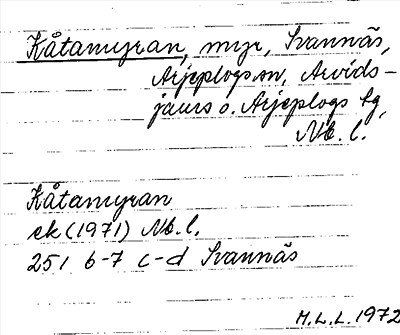 Kåtamyran, myr, Svannäs,
Arjeplogs sn, Arvids-
jaurs o. Arjeplogs tg,
Nb. l.
Kåtamyran
ek (1971) Nb. l.
25 I 6-7 c-d Svannäs
M. L. L. 1972